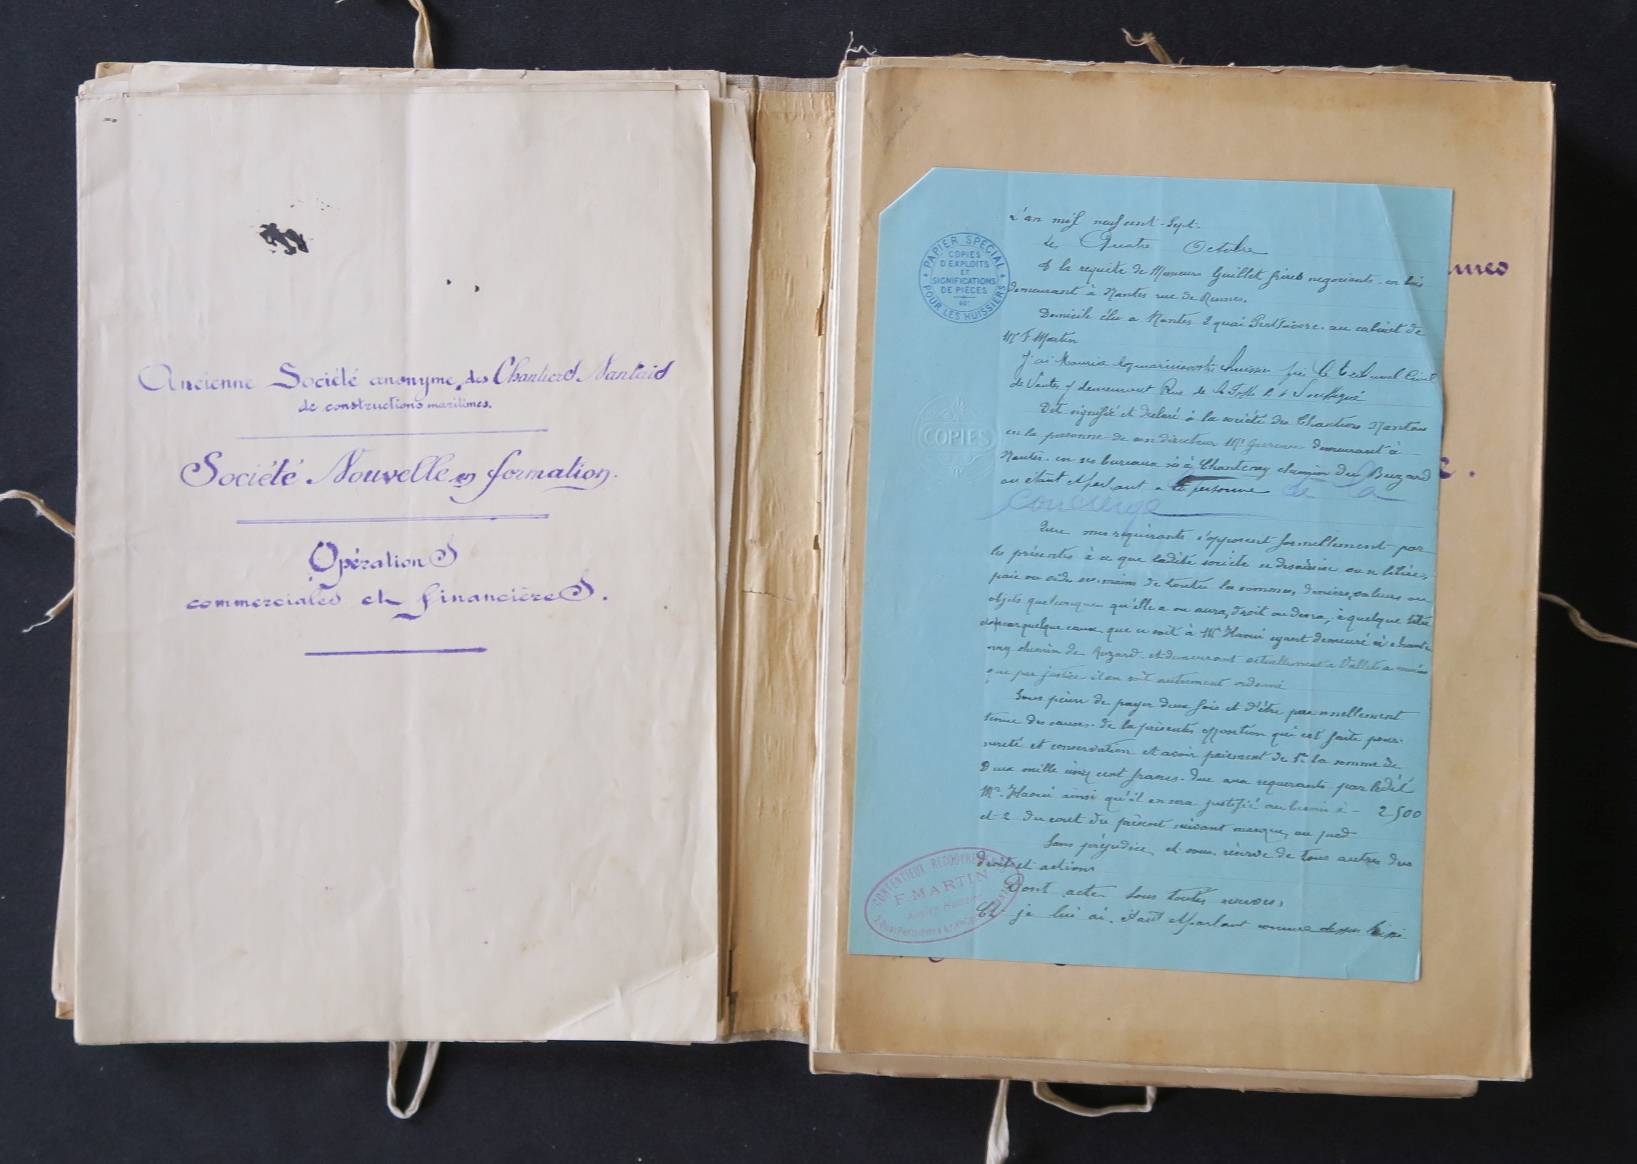 Ancienne Société anonyme des Chantiers Nantais
de constructions maritimes.
Société Nouvelle en formation.
Opérations
commerciales et financières.
PAPIER SPECIAL
COPIES
D'EXPLOITS
ET
SIGNIFICATIONS
DE PIÈCES
POUR LES HUISSIERS
COPIES
L'an mil neuf cent sept
le Quatre Octobre
A la requête de Messieurs Guillet frères negociants en bois
demeurant à Nantes rue de Rennes.
Domicile élu a Nantes 2 quai au cabinet de
Mr F Martin
J'ai Maurice huissier près le Tribunal Civil
de Nantes y demeurant Rue de
Dit signifié et declaré à la société des Chantiers Nantais
en la personne de son directeur Mr demeurant à
Nantes en ses bureaux sis à Chantenay chemin du Buzard
ou étant et parlant a sa personne de la
concierge
Que mes requérants s'opposent formellement par
les présentes à ce que ladite société se dessaisisse ou se libère,
paie ou vide ses mains de toutes les sommes, deniers, valeurs ou
objets quelconques qu'elle a ou aura, doit ou devra, à quelque titre
et pour quelque cause que ce soit à Mr Haoui ayant demeuré à chante
nay chemin du Buzard et demeurant actuellement a Vallet a moins
que par justice il en soit autrement ordonné
Sous peine de payer deux fois et d'être personnellement
tenue des causes de la présente opposition qui est faite pour
sureté et conservation et avoir paiement de 1° la somme de
Deux mille cinq cent francs due aux requerants par ledit
Mr Haoui ainsi qu'il en sera justifié au besoin ci 2500
et 2 du cout du présent suivant marque au pied
Sans préjudice et sous réserve de tous autres dus
droits et actions
Dont acte sous toutes réserves,
Et je lui ai, étant et parlant comme dessus
CONTENTIEUX RECOUVREMENTS
F. MARTIN